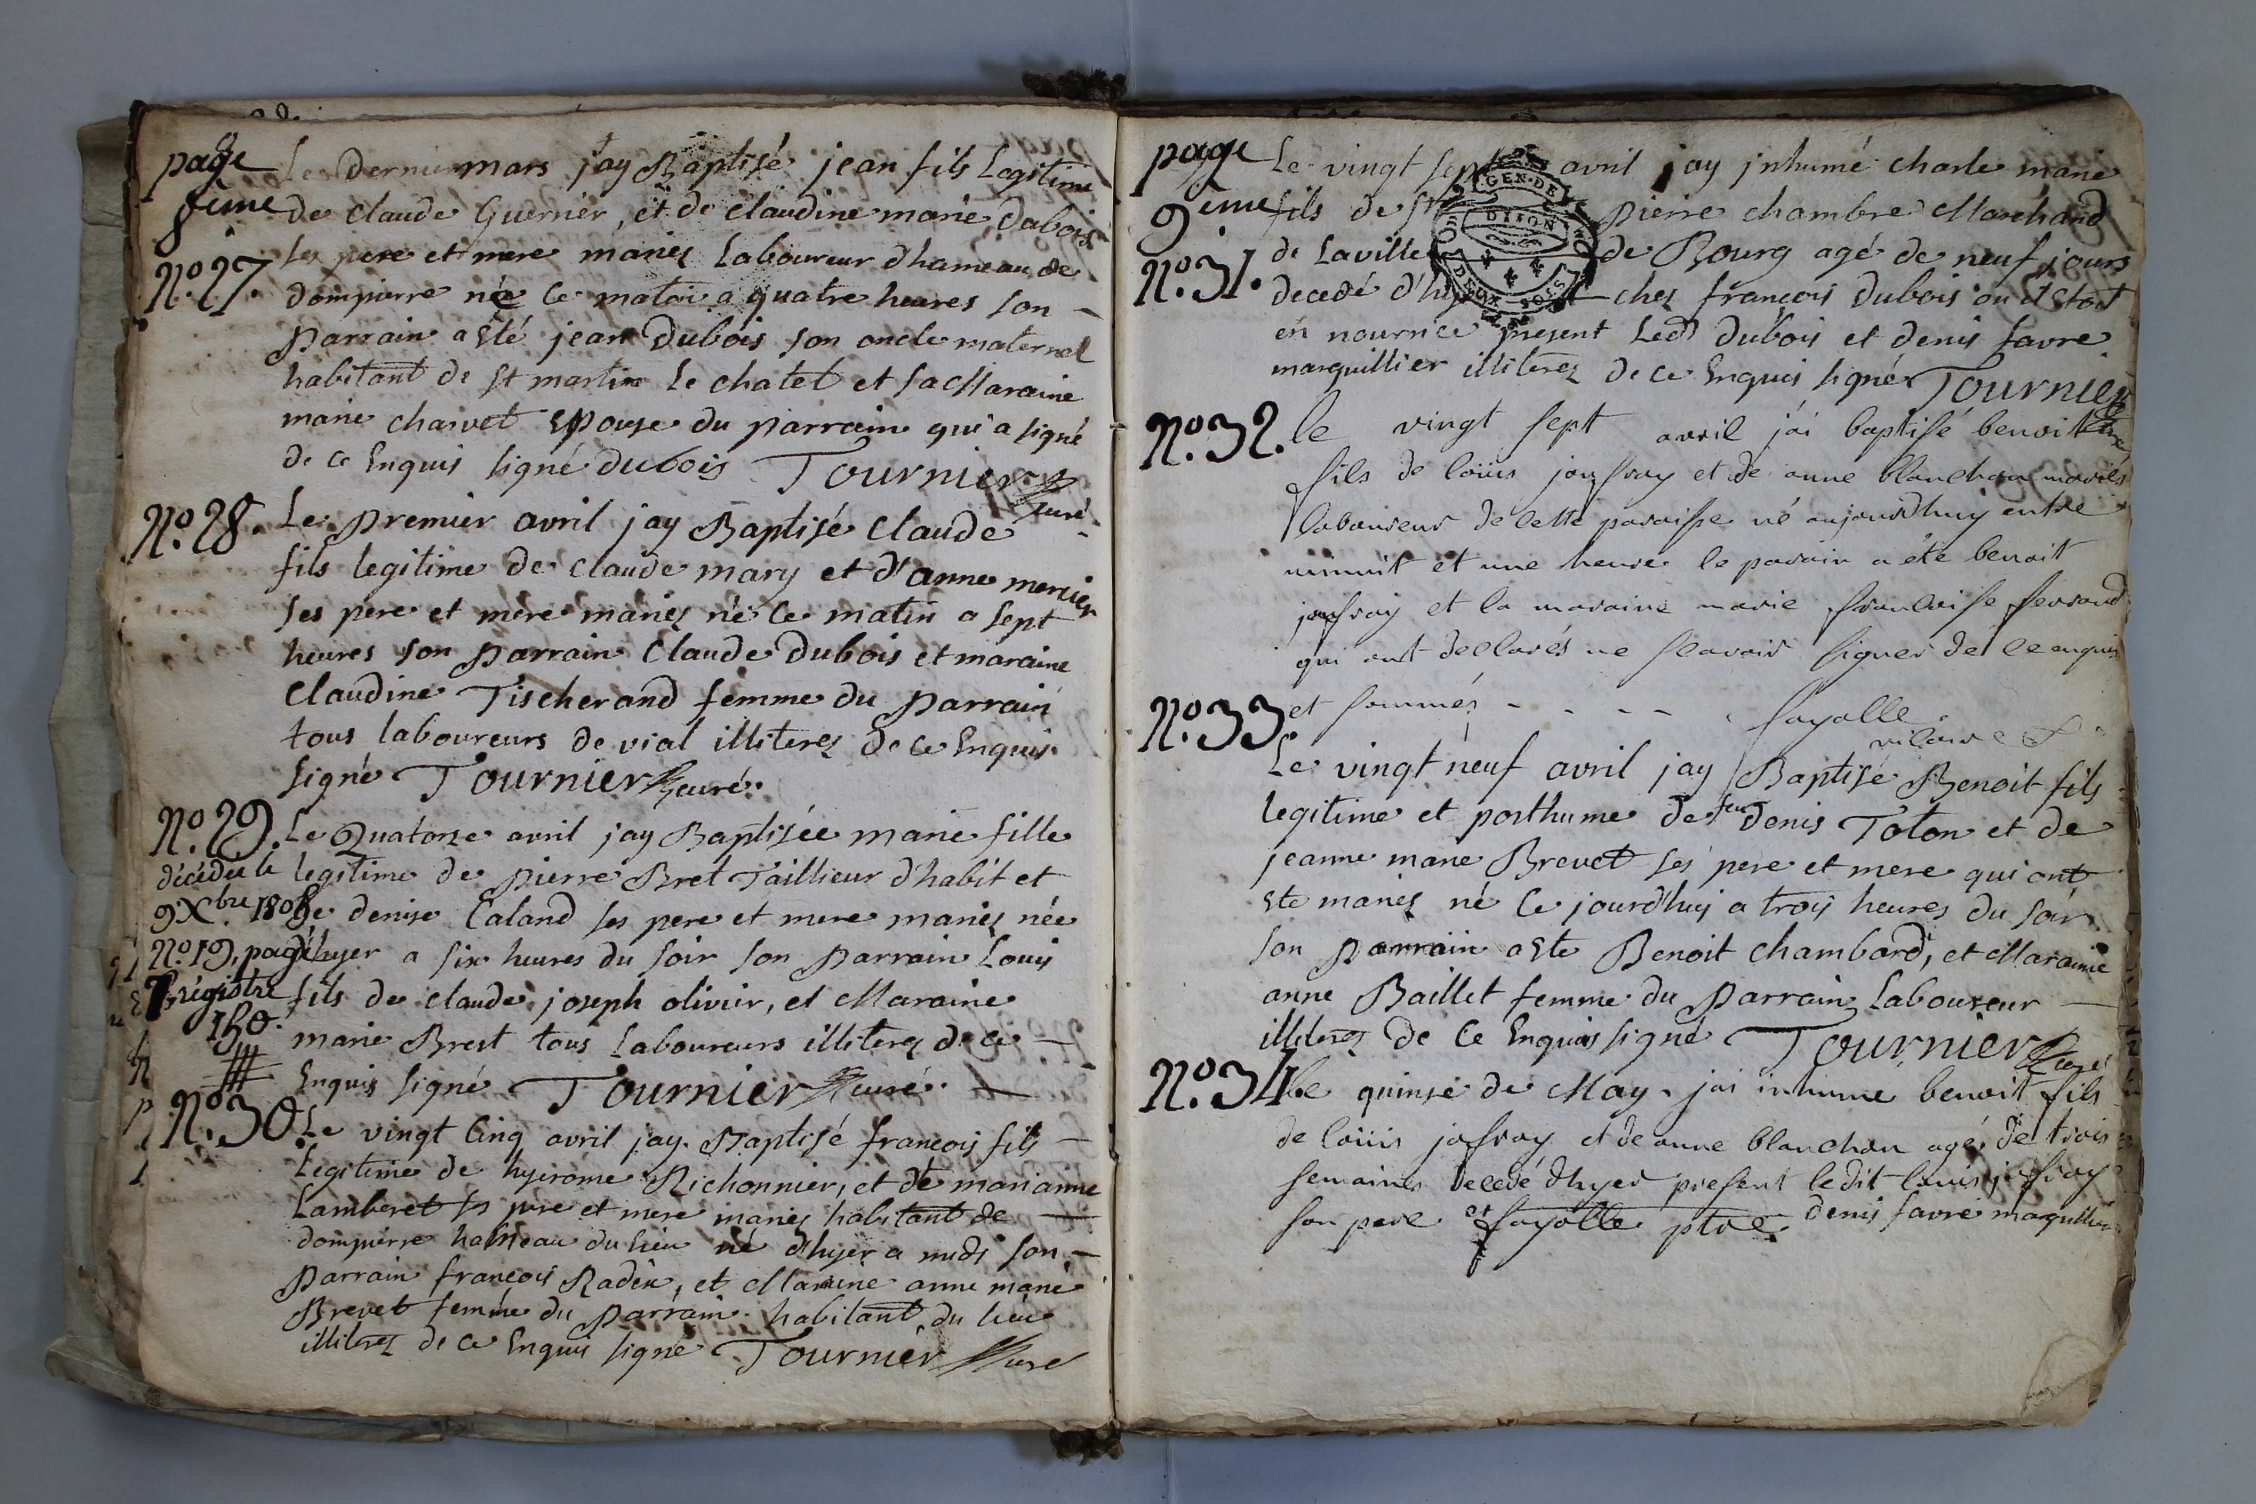 page 8eme
Le Dernier mars jay Baptisé jean fils Legitime
de Claude Guerrier, et de claudine marie Dubois
N.º 27.
ses pere et mere mariez Laboureur d'hameau de
dompierre née Ce matin a quatre heures son
Parrain a Eté jean Dubois son oncle maternel
habitant de St martin Le chatel et sa Maraine
marie charvet Epouse du parrain qui a signé
de ce Enquis signé Dubois Tournier Curé
N.º 28.
Le premier avril jay Baptisé Claude
fils legitime de Claude mary et d'anne mercier
ses pere et mere mariez né Ce matin a sept
heures son Parrain Claude Dubois et maraine
Claudine Tischerand femme du Parrain
tous laboureurs de vial illiterez de ce Enquis
signé Tournier Curé.
N.º 29.
Le Quatorze avril jay Baptisée marie fille
legitime de Pierre Bret Taillieur d'habit et
de denise Caland ses pere et mere mariez née
d'hyer a six heures du soir son Parrain Louis
fils de claude joseph olivier, et Maraine
marie Brest tous Laboureurs illiterez de ce
Enquis signé Tournier Curé.
décédée le
9 Xbre
N.º 19, page
7, régistre
N.º 30.
Le vingt Cinq avril jay Baptisé francois fils
Legitime de hyerome Richonnier, et de marianne
Lamberet ses pere et mere mariez habitant de
dompierre hameau du lieu né d'hyer a midi son
Parrain francois Radix, et Maraine anne marie
Brevet femme du Parrain habitant du lieu
illiterez de ce Enquis signé Tournier Curé
page 9eme
Le vingt sept avril jay jnhumé charle marie
fils de Pierre chambre Marchand
N.º 31.
de La ville de Bourg agé de neuf jours
decedé d'hyer chez francois Dubois ou il Etoit
en nourrice present Led Dubois et denis favre
marguillier illiterez de ce Enquis signé Tournier
GEN. DE DIJON
DEUX SOLS
N.º 32.
le vingt sept avril jái baptisé benoit
fils de loüis joufray et de anne blanchon mariés
laboureur de cette paroisse né aujourdhuy entre
minuit et une heure le parain a été benoit
joufray et la maraine marie francoise ferrand
qui ont declarés ne scavoir signer de ce enquis
et sommés - - - - fayolle
vicaire
N.º 33
Le vingt neuf avril jay Baptisé Benoit fils
legitime et posthume de feu Denis Toton et de
jeanne marie Brevet ses pere et mere qui ont
Eté mariez né Ce jourd'huy a trois heures du soir
son Parrain a Eté Benoit chambard, et Maraine
anne Baillet femme du Parrain Laboureur
illiterez de Ce Enquis signé Tournier Curé
N.º 34.
le quinse de May jai inhumé benoit fils
de loüis jofray et de anne blanchon agé de trois
semaines decedé d'hyer present ledit louis jofray
son pere et denis favre marguillier
fayolle ptre